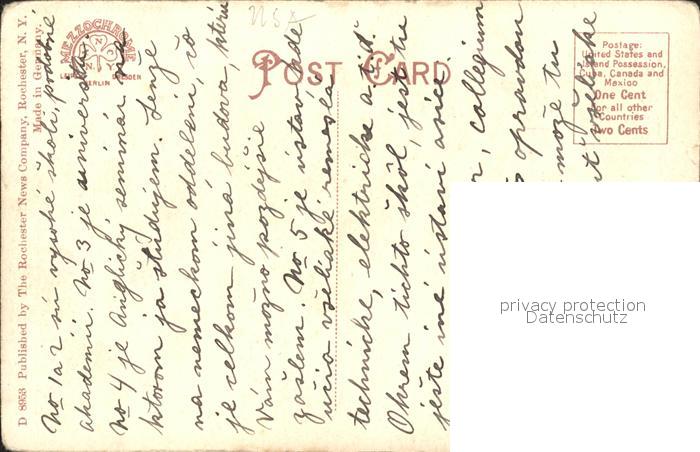 USA
D 8953 Published by The Rochester News Company, Rochester, N. Y.
Made in Germany.
MEZZOCHROME
BERLIN DRESDEN
POST CARD
Postage:
United States and
Island Possession,
Cuba, Canada and
Mexico
One Cent
For all other
Countries
Two Cents
No 1 a 2 sú vysoké školi, podobné
akademii. No 3 je universita
No 4 je Anglický seminár na
ktorom ja študujem. Lenže
na nemeckom oddeleni čo
je celkom jiná budova, ktorú
Vám možno pozdejšie
zašlem. No 5 je ústav kde
učia všeliaké remeslá
technické, elektrické a.t.d.
Okrem tichto škôl, jest tu
ješte iné ústavi asice:
collegium
opravdou
može tu
všeliake
privacy protection
Datenschutz